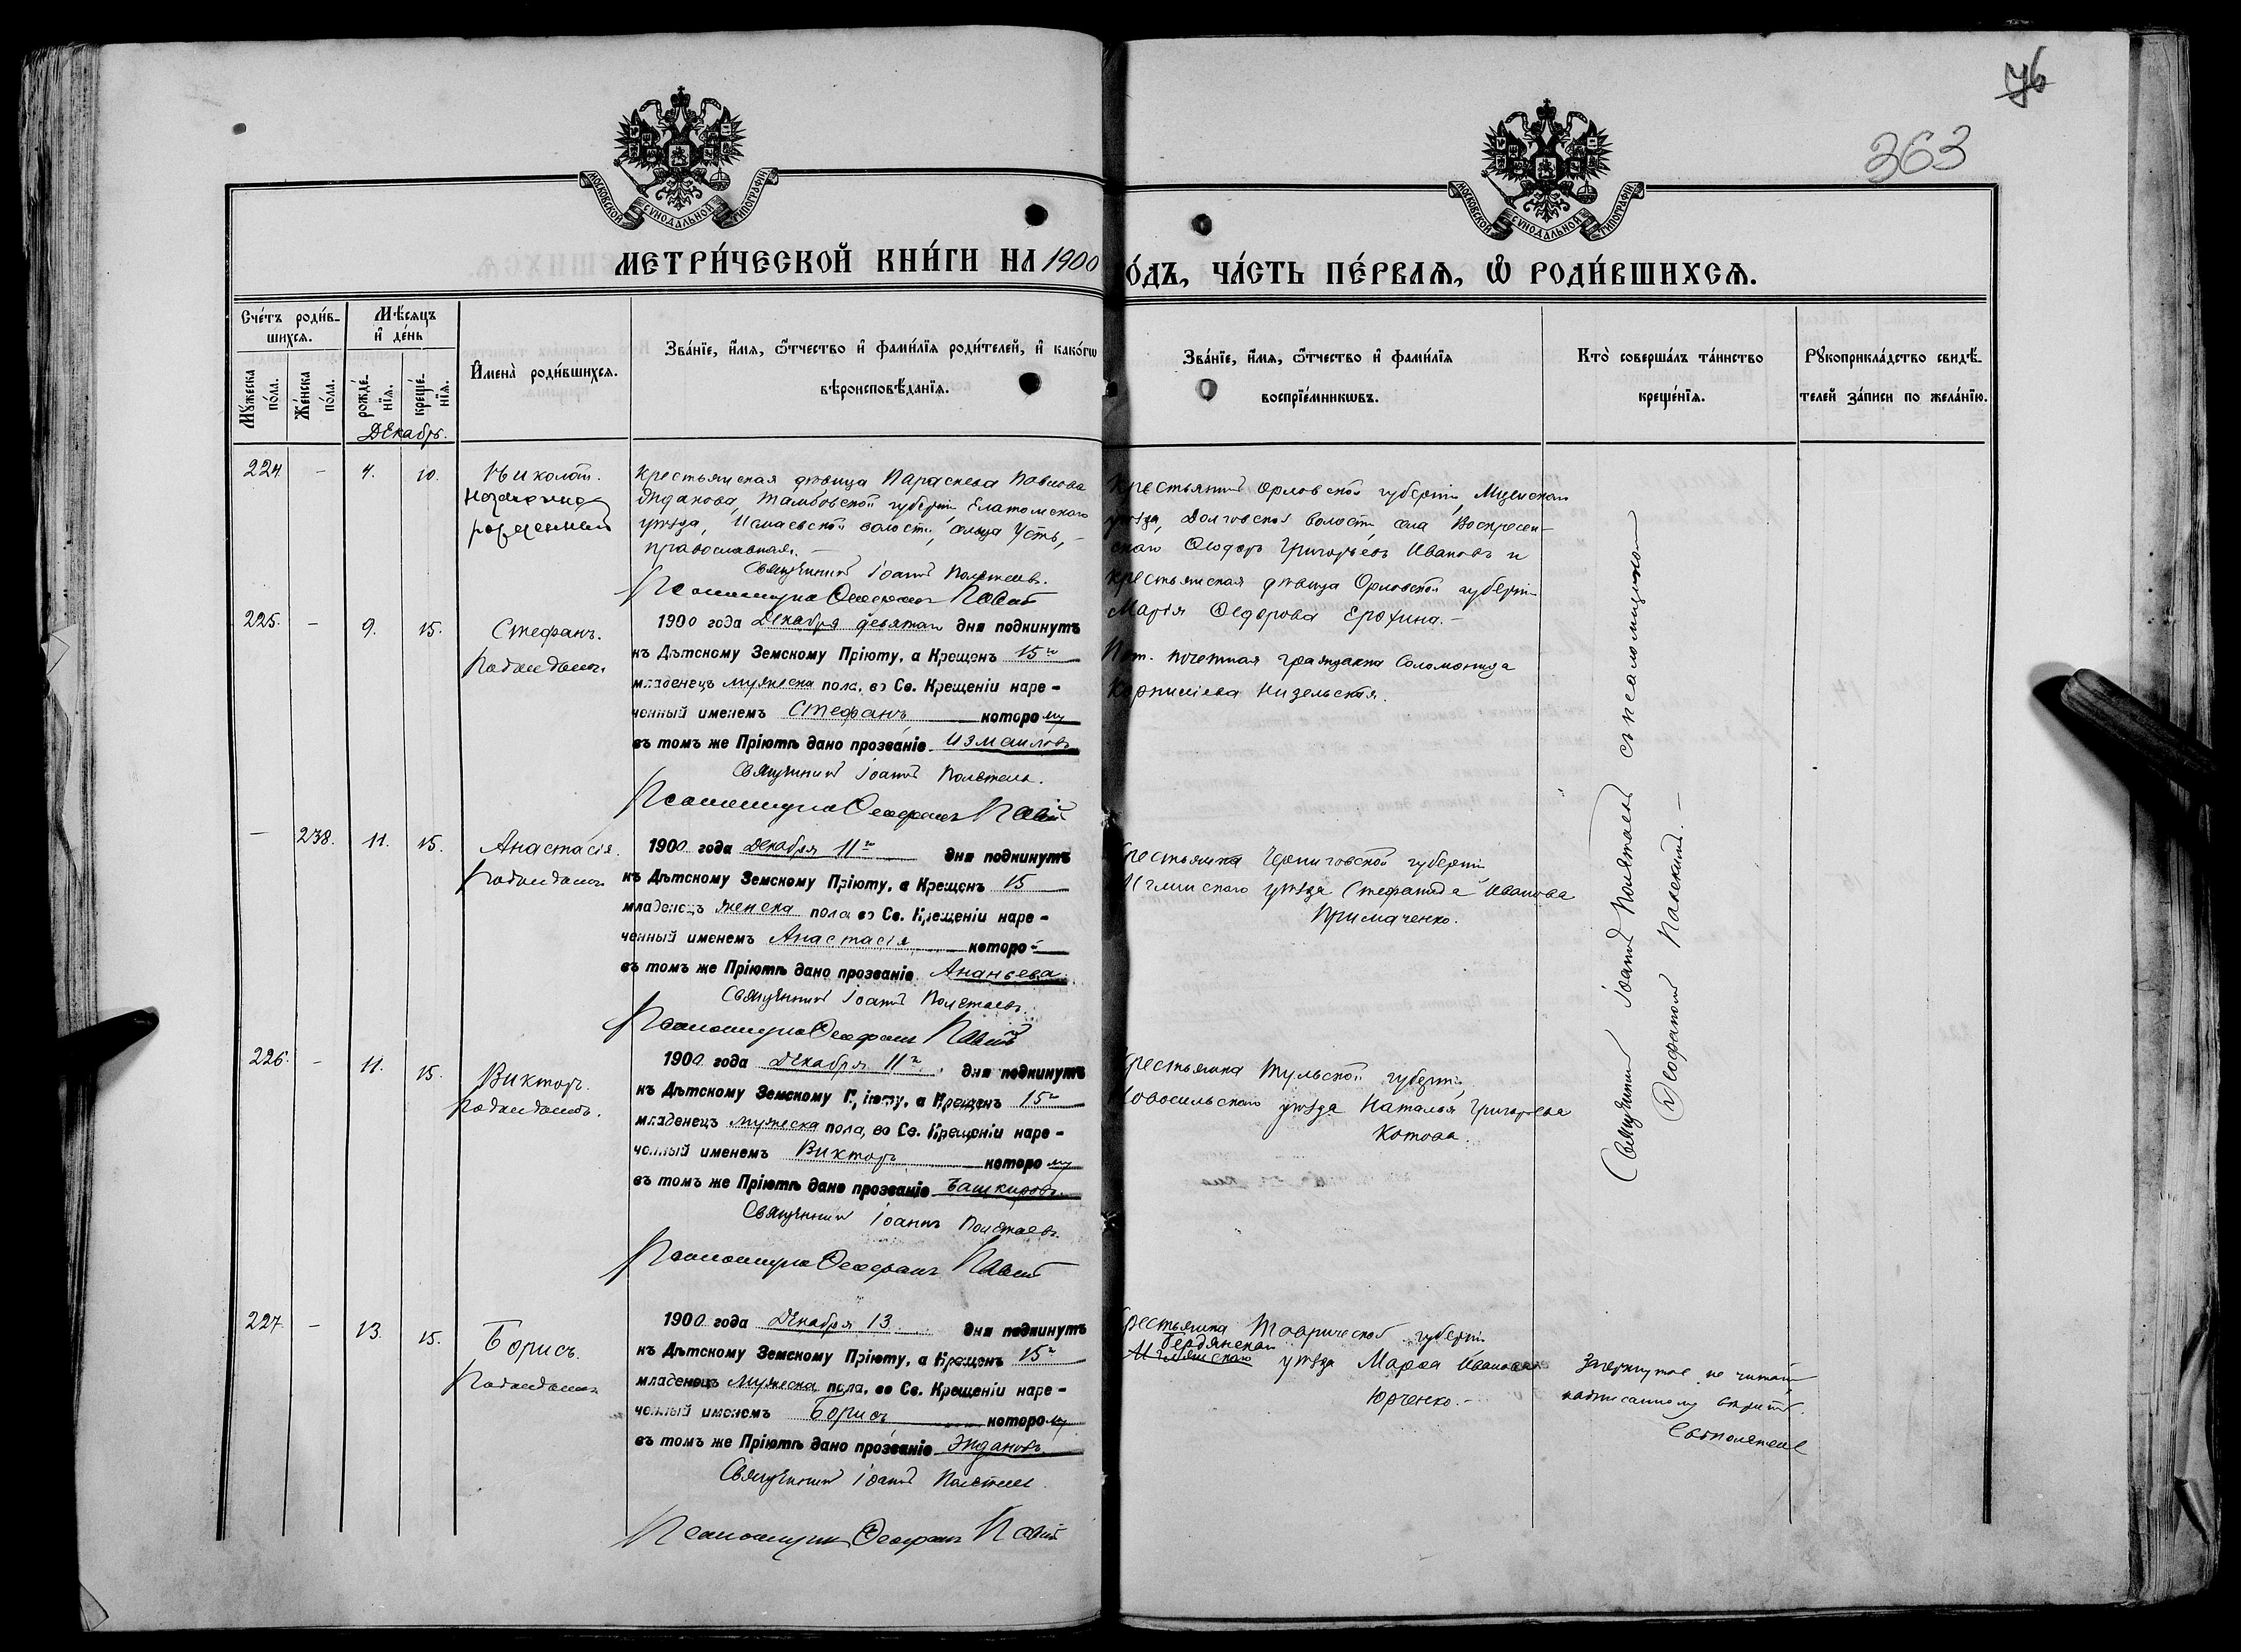 76
363
МОСКОВСКОЙ СУНОДАЛЬНОЙ ТИПОГРАФІИ
МОСКОВСКОЙ СУНОДАЛЬНОЙ ТИПОГРАФІИ
МЕТРИ́ЧЕСКОЙ КНИ́ГИ НА 1900
О́ДЪ, ЧА́СТЬ ПЕ́РВАѦ, Ѡ҆ РОДИ́ВШИХСѦ.
Сче́тъ роди́в-
шихсѧ.
Мꙋ́жеска по́ла.
Же́нска по́ла.
Мѣ́сѧцъ
и҆ де́нь
рожде́-нїѧ.
креще́-нїѧ.
Декабрь.
И҆мена̀ роди́вшихсѧ.
Зва́нїе, и҆́мѧ, ѻ҆́тчество и҆ фами́лїѧ роди́телей, и҆ како́гѡ
вѣроисповѣ́данїѧ.
Зва́нїе, и҆́мѧ, ѻ҆́тчество и҆ фами́лїѧ
воспрїе́мникѡвъ.
Кто̀ соверша́лъ та́инство
креще́нїѧ.
Рꙋкоприкла́дство свидѣ́-
телей за́писи по жела́нїю.
224. - 4. 10.
Николай.
незаконно
рожденный
Крестьянская дѣвица Параскева Павлова
Жданова, Тамбовской губерніи Елатомского
уѣзда, волости, сельца Усть, -
православная. -
Священникъ Іоаннъ Полетаевъ.
Псаломщикъ Ѳеофанъ
Крестьянинъ Орловской губерніи, Мценскаго
уѣзда, Долговской волости, села Воскресен-
скаго Ѳеодоръ Григорьевъ Ивановъ и
крестьянская дѣвица Орловской губерніи
Марія Ѳедорова Ерохина. -
225. - 9. 15.
Стефанъ.
Подкидышъ.
1900 года Декабря девятаго дня подкинутъ
къ Дѣтскому Земскому Пріюту, а Крещенъ 15го
младенецъ мужеска пола, во Св. Крещеніи наре-
ченный именемъ Стефанъ которому
въ томъ же Пріютѣ дано прозваніе Измаиловъ
Священникъ Іоаннъ Полетаевъ.
Псаломщикъ Ѳеофанъ
Пот. почетная гражданка Соломонида
Корниліева
- 238. 11. 15.
Анастасія.
Подкидышъ
1900 года Декабря 11го дня подкинутъ
къ Дѣтскому Земскому Пріюту, а Крещенъ 15
младенецъ женска пола во Св. Крещеніи наре-
ченный именемъ Анастасія которой
въ томъ же Пріютѣ дано прозваніе Ананьева.
Священникъ Іоаннъ Полетаевъ.
Псаломщикъ Ѳеофанъ
Крестьянка Черниговской губерніи,
Мглинскаго уѣзда Стефанида Иванова
Примаченко.
226. - 11. 15.
Викторъ.
Подкидышъ.
1900 года Декабря 11го дня подкинутъ
къ Дѣтскому Земскому Пріюту, а Крещенъ 15го
младенецъ мужеска пола, во Св. Крещеніи наре-
ченный именемъ Викторъ которому
въ томъ же Пріютѣ дано прозваніе Башкировъ.
Священникъ Іоаннъ Полетаевъ.
Псаломщикъ Ѳеофанъ
Крестьянка Тульской губерніи,
Новосильскаго уѣзда Наталья Григорьева
Котова.
227. - 13. 15.
Борисъ.
Подкидышъ
1900 года Декабря 13 дня подкинутъ
къ Дѣтскому Земскому Пріюту, а Крещенъ 15го
младенецъ мужеска пола, во Св. Крещеніи наре-
ченный именемъ Борисъ которому
въ томъ же Пріютѣ дано прозваніе Ждановъ
Священникъ Іоаннъ Полетаевъ.
Псаломщикъ Ѳеофанъ
Крестьянка Таврической губерніи
Бердянскаго
Мглинскаго уѣзда Марѳа Иванова
Юрченко. -
Священникъ Іоаннъ Полетаевъ съ псаломщикомъ
Ѳеофаномъ
Зачеркнутое не читать